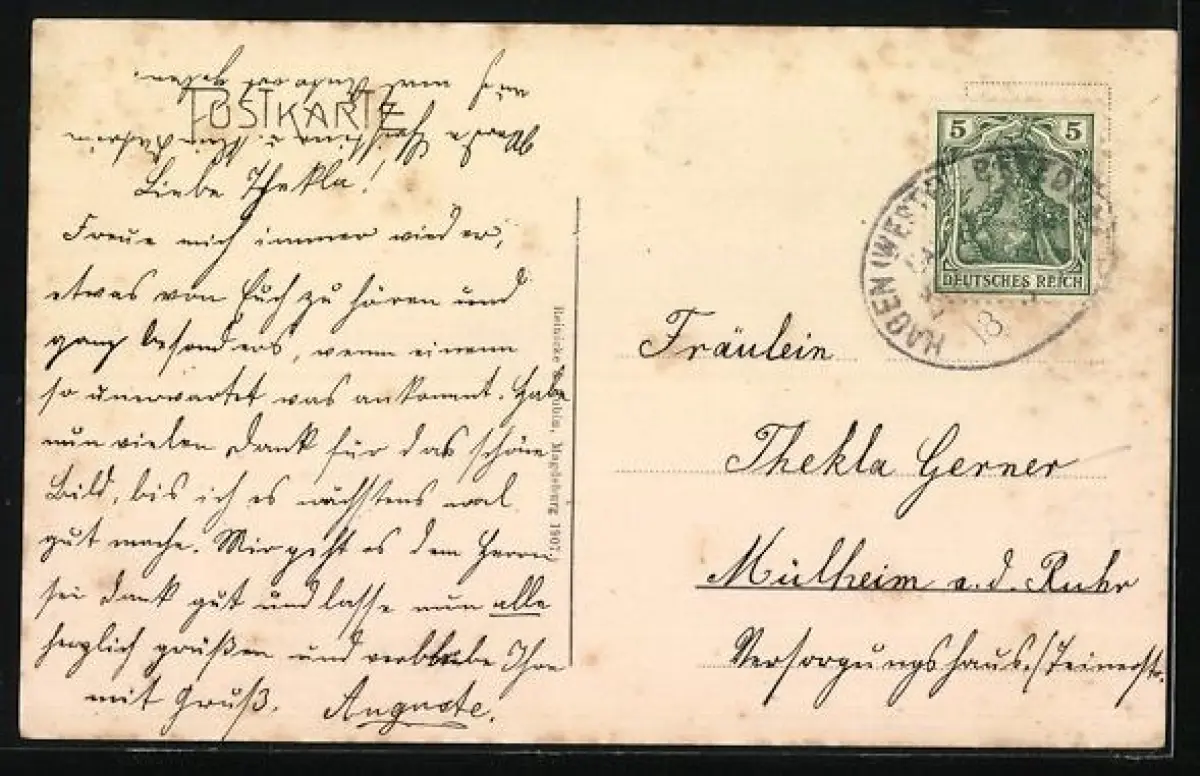 POSTKARTE
Liebe Thekla!
Freue mich immer wieder,
etwas von Euch zu hören und
ganz besonders, wenn einem
so unerwartet was ankommt. Habe
nun vielen Dank für das schöne
Bild, bis ich es nächstens mal
gut mache. Mir geht es dem Herrn
sei Dank gut und lasse nun alle
herzlich grüßen und verbleibe Ihre
mit Gruß. Auguste.
Reinicke & Rubin, Magdeburg 1907.
5 5
DEUTSCHES REICH
HAGEN (WESTF
18
Fräulein
Thekla Gerner
Mülheim a. d. Ruhr
Versorgungshaus,/Teinerstr.